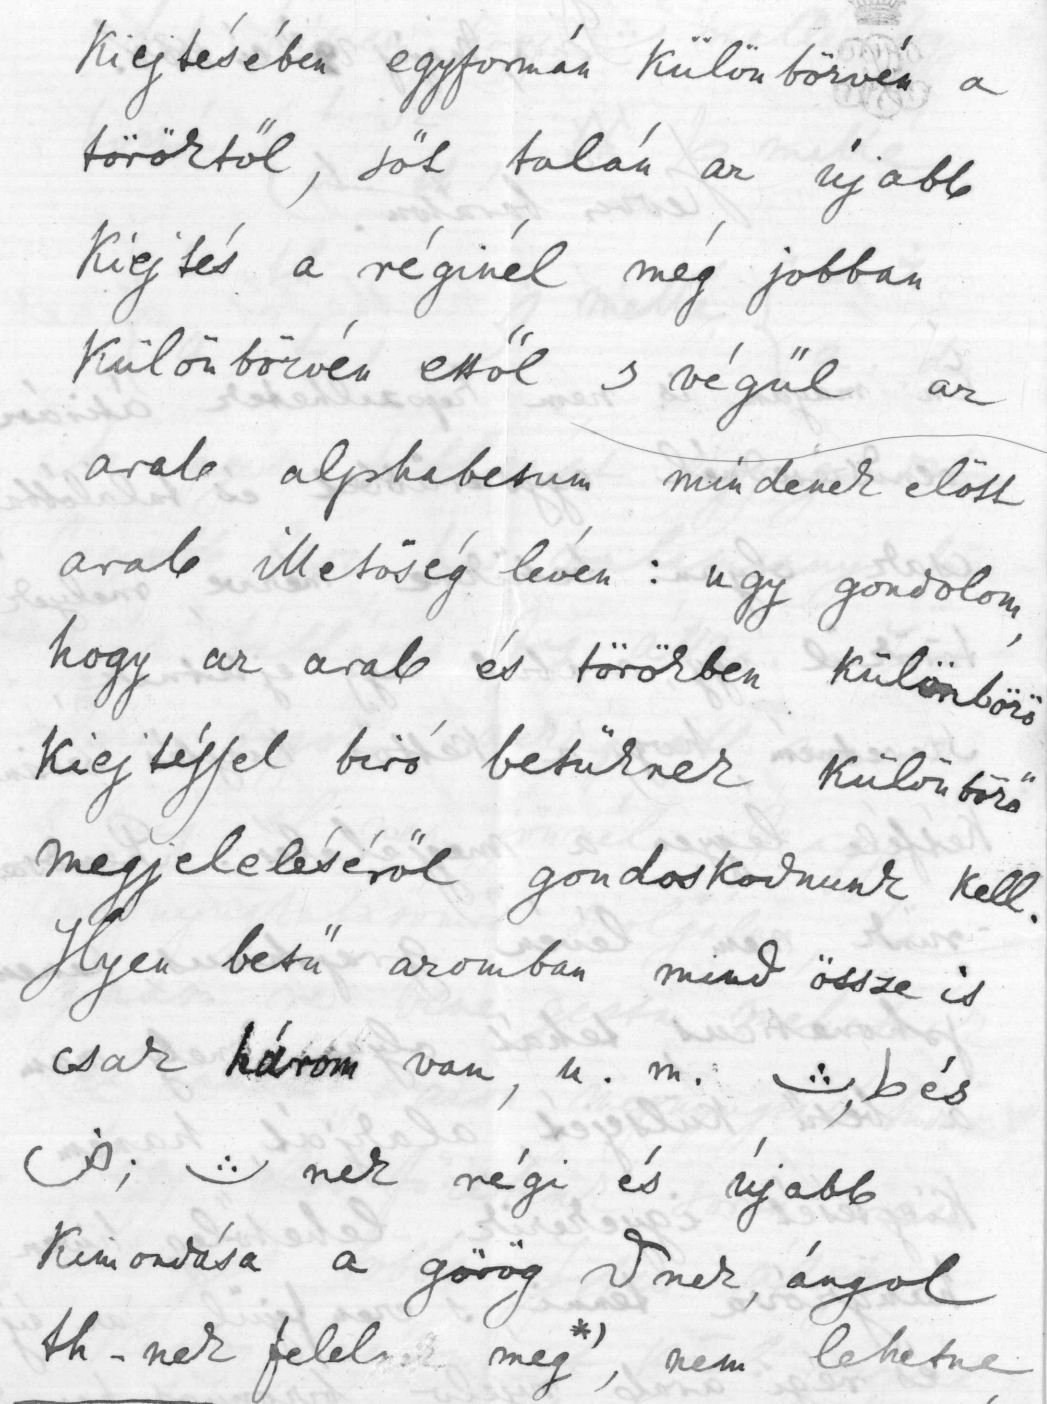 Kiejtésében egyformán különbözvén a
töröktől, sőt talán az újabb
Kiejtés a réginél még jobban
különbözvén ettől s végül az
arab alphabetum mindenek előtt
arab illetőség lévén: ugy gondolom,
hogy az arab és törökben különböző
kiejtéssel biró betüknek különböző
megjeleléséről gondoskodnunk kell.
Ilyen betü azomban mind össze is
csak három van, u. m. ث, ط és
ض; ث nek régi és újabb
Kimondása a görög ϑ nek, ángol
th-nek felel meg*), nem lehetne